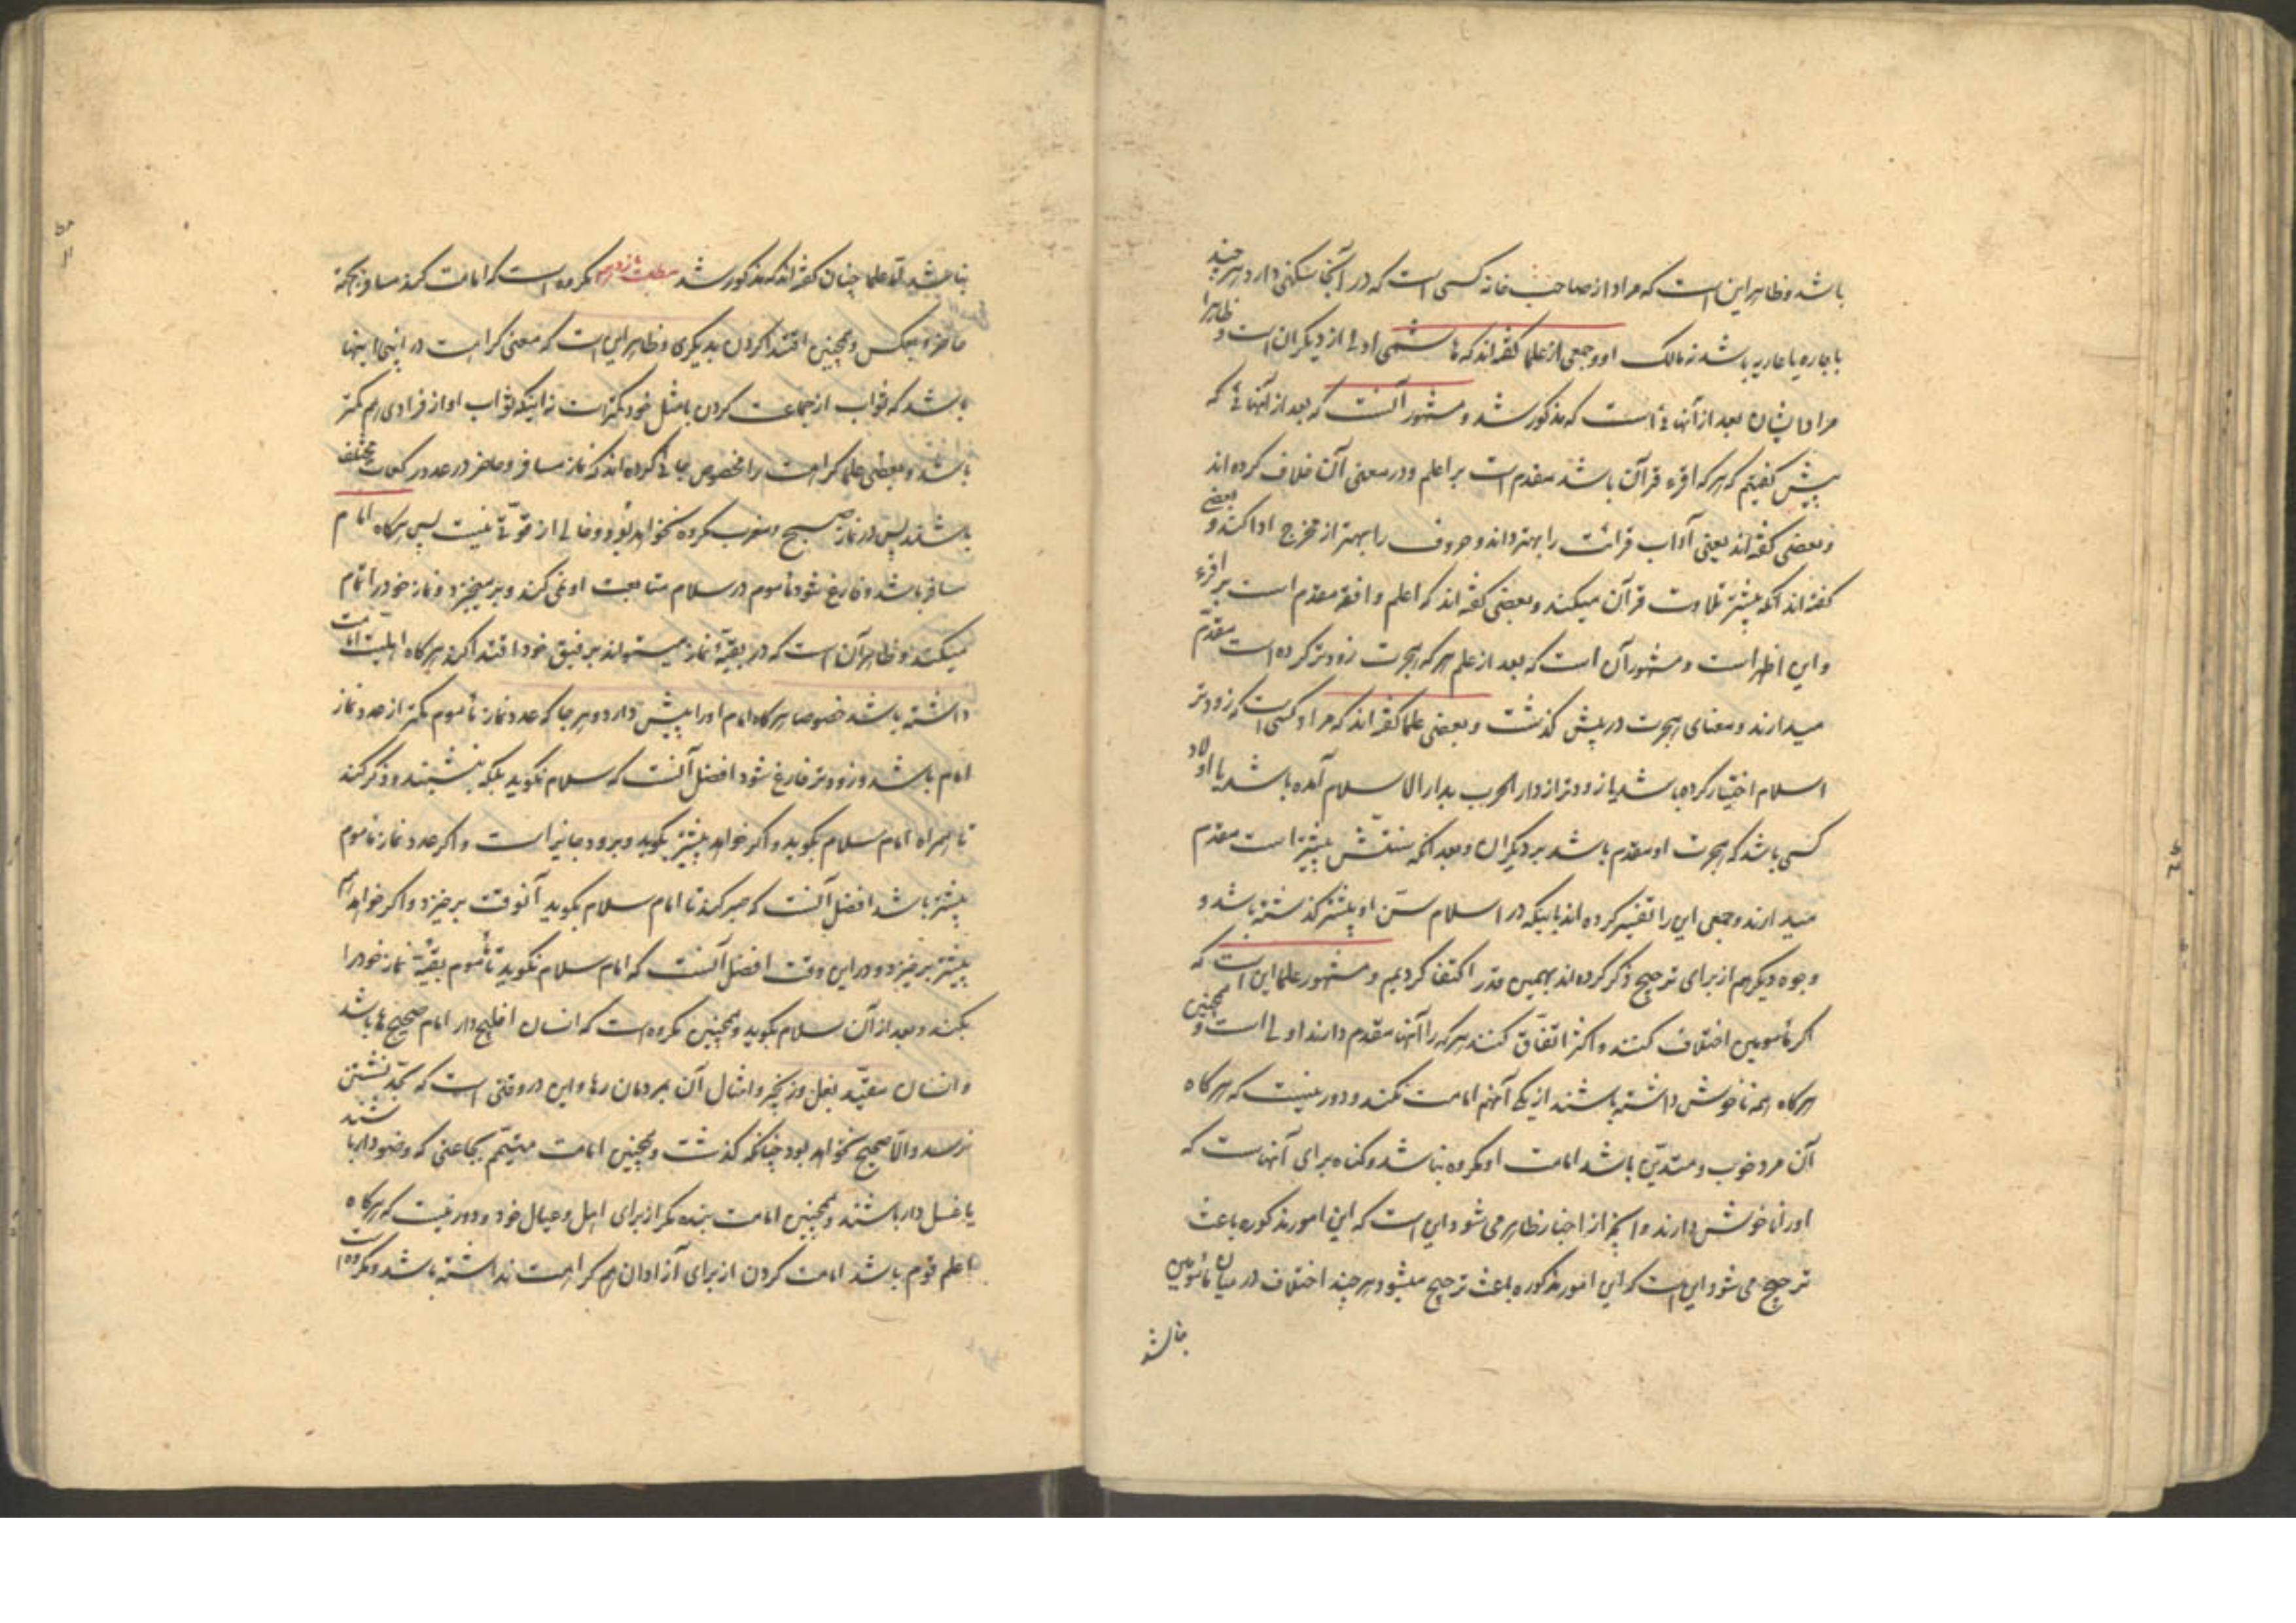 باشد و ظاهر این است که مراد از صاحب خانه کسی است که در آنجا سکنی دارد هر چند
باجاره یا عاریه باشد نه مالک او و جمعی از علما گفته‌اند که هاشمی اولی از دیگران است و ظاهرا
مراد ایشان بعد از آنهائی است که مذکور شد و مشهور آنست که بعد از آنهائی که
پیش گفتیم که هر که اقرء قرآن باشد مقدم است بر اعلم و در معنی آن خلاف کرده‌اند
و بعضی گفته‌اند یعنی آداب قرائت را بهتر داند و حروف را بهتر از مخرج ادا کند و بعضی
گفته‌اند آنکه بیشتر تلاوت قرآن میکند و بعضی گفته‌اند که اعلم و افقه مقدم است بر اقرء
و این اظهر است و مشهور آن است که بعد از علم هر که هجرت زودتر کرده است مقدم
میدارند و معنای هجرت در پیش گذشت و بعضی علما گفته‌اند که مراد کسی است که زودتر
اسلام اختیار کرده باشد یا زودتر از دار الحرب بدار الاسلام آمده باشد یا اولاد
کسی باشد که هجرت او مقدم باشد بر دیگران و بعد آنکه سنّش بیشتر است مقدم
میدارند و جمعی این را تفسیر کرده‌اند باینکه در اسلام سنّ او بیشتر گذشته باشد و
وجوه دیگر هم از برای ترجیح ذکر کرده‌اند بهمین قدر اکتفا کردیم و مشهور علما این است که
اگر مأمومین اختلاف کنند و اکثر اتفاق کنند هر که را آنها مقدم دارند اولی است و همچنین
هرگاه همه ناخوش داشته باشند از یکی آنهم امامت نکند و دور نیست که هرگاه
آن مرد خوب و متدیّن باشد امامت او مکروه نباشد و گناه برای آنهاست که
او را ناخوش دارند و آنچه از اخبار ظاهر می شود این است که این امور مذکوره باعث
ترجیح می شود این است که این امور مذکوره باعث ترجیح میشود هر چند اختلاف در میان مأمومین
نباشد
نباشد اما علما چنان گفته‌اند که مذکور شد مکروه است که امامت کند مسافر بجهة
حاضر و بعکس و همچنین اقتدا کردن بدیگری و ظاهر این است که معنی کراهت در اینجا اینها
باشد که ثواب از جماعت کردن با مثل خود کمتر است نه اینکه ثواب او از فرادی هم کمتر
باشد و بعضی علما کراهت را مخصوص جائی کرده‌اند که نماز مسافر و حاضر در عدد رکعات مختلف
باشند پس در نماز صبح و مغرب مکروه نخواهد بود و خالی از قوّتی نیست پس هرگاه امام
مسافر باشد و فارغ شود مأموم در سلام متابعت او نمی کند و برمیخیزد و نماز خود را تمام
میکند و ظاهر آن است که در بقیّهٔ نماز میتواند برفیق خود اقتدا کند هرگاه اهلیّت امامت
داشته باشد خصوصا هرگاه امام او را پیش دارد و هر جا که عدد نماز مأموم کمتر از عدد نماز
امام باشد و زودتر فارغ شود افضل آنست که سلام نگوید بلکه بنشیند و ذکر کند
تا همراه امام سلام بگوید و اگر خواهد پیشتر بگوید و برود جایز است و اگر عدد نماز مأموم
بیشتر باشد افضل آنست که صبر کند تا امام سلام بگوید آنوقت برخیزد و اگر خواهد هم
پیشتر برخیزد و در این وقت افضل آنست که امام سلام نگوید تا مأموم بقیّهٔ نماز خود را
بکند و بعد از آن سلام بگوید و همچنین مکروه است که انسان افلیج دار امام صحیح ها باشد
و انسان مقیّد بغل و زنجیر و امثال آن بمردمان رها و این در وقتی است که بحدّ نشستن
نرسد والّا صحیح نخواهد بود چنانکه گذشت و همچنین امامت متیمّم بجماعتی که وضو دار باشند
یا غسل دار باشند و همچنین امامت بنده مگر از برای اهل و عیال خود و دور نیست که هرگاه
اعلم قوم باشد امامت کردن از برای آزادان هم کراهت نداشته باشد و مکروه است